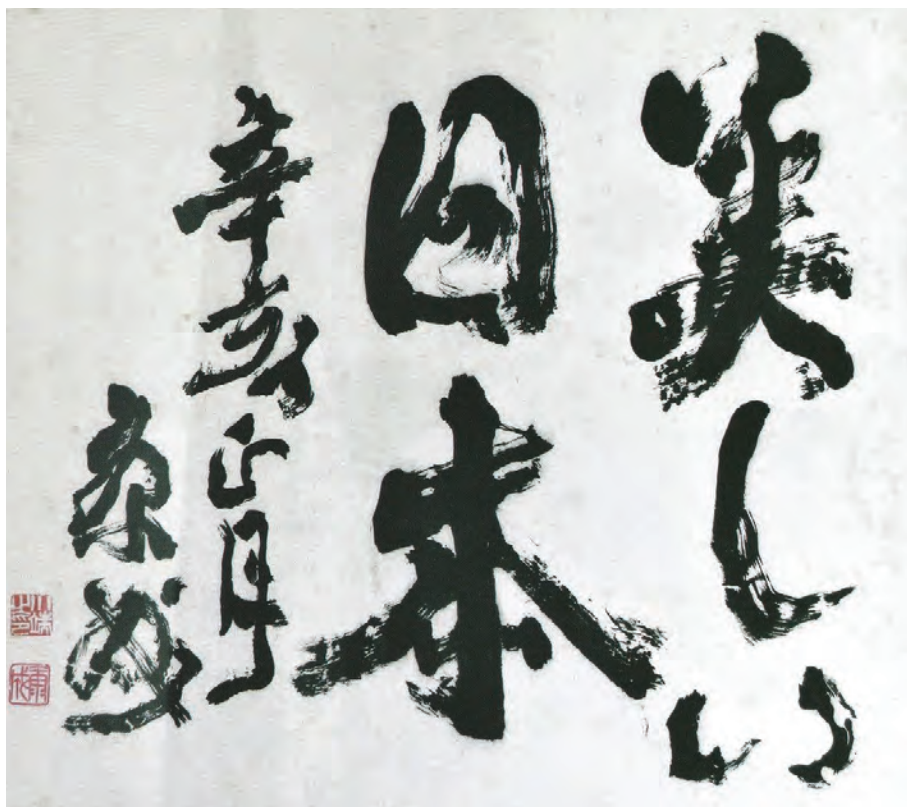 美しい
日本
辛亥正月
康成
康成